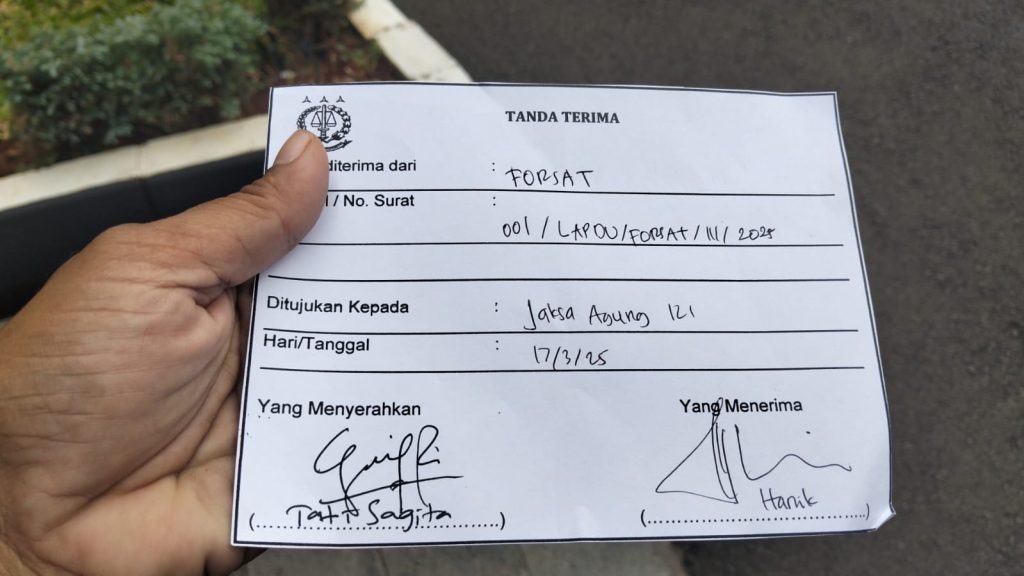 TANDA TERIMA
diterima dari : FORSAT
/ No. Surat :
001 / LAPDU/FORSAT / III / 2025
Ditujukan Kepada : Jaksa Agung
Hari/Tanggal : 17/3/25
Yang Menyerahkan Yang Menerima
Hanik
(........................................) (........................................)
Sagita